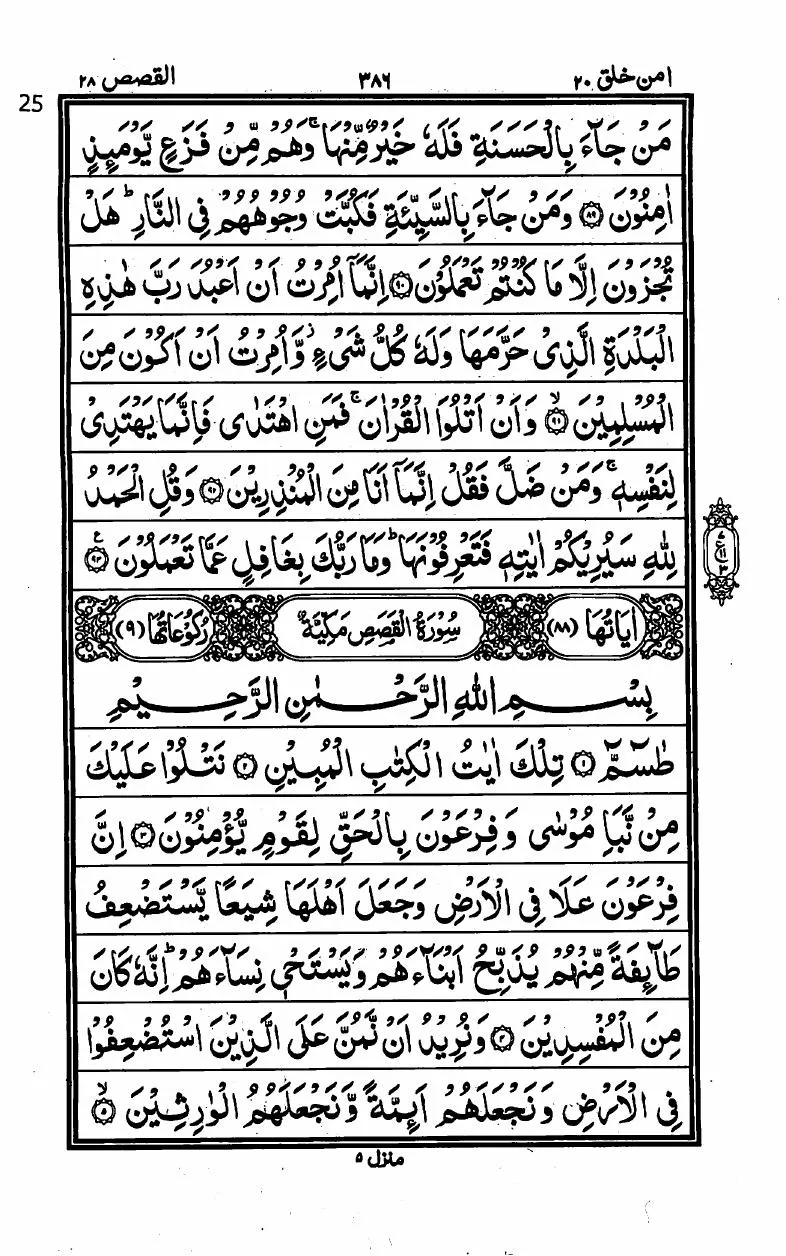 امن خلق ٢٠ ٣٨٦ القصص ٢٨
25
مَنْ جَآءَ بِالْحَسَنَةِ فَلَهٗ خَيْرٌ مِّنْهَا ۚ وَهُمْ مِّنْ فَزَعٍ يَّوْمَىِٕذٍ
اٰمِنُوْنَ ﴿٨٩﴾ وَمَنْ جَآءَ بِالسَّيِّئَةِ فَكُبَّتْ وُجُوْهُهُمْ فِى النَّارِ ؕ هَلْ
تُجْزَوْنَ اِلَّا مَا كُنْتُمْ تَعْمَلُوْنَ ﴿٩٠﴾ اِنَّمَاۤ اُمِرْتُ اَنْ اَعْبُدَ رَبَّ هٰذِهِ
الْبَلْدَةِ الَّذِىْ حَرَّمَهَا وَلَهٗ كُلُّ شَىْءٍ ؗ وَّاُمِرْتُ اَنْ اَكُوْنَ مِنَ
الْمُسْلِمِيْنَ ۙ﴿٩١﴾ وَاَنْ اَتْلُوَا الْقُرْاٰنَ ۚ فَمَنِ اهْتَدٰى فَاِنَّمَا يَهْتَدِىْ
لِنَفْسِهٖ ۚ وَمَنْ ضَلَّ فَقُلْ اِنَّمَاۤ اَنَا مِنَ الْمُنْذِرِيْنَ ﴿٩٢﴾ وَقُلِ الْحَمْدُ
لِلّٰهِ سَيُرِيْكُمْ اٰيٰتِهٖ فَتَعْرِفُوْنَهَا ؕ وَمَا رَبُّكَ بِغَافِلٍ عَمَّا تَعْمَلُوْنَ ﴿٩٣﴾ ع
اٰيَاتُهَا (٨٨) سُوْرَةُ الْقَصَصِ مَكِّيَّةٌ رُكُوْعَاتُهَا (٩)
بِسْمِ اللهِ الرَّحْمٰنِ الرَّحِيْمِ
طٰسٓمّٓ ﴿١﴾ تِلْكَ اٰيٰتُ الْكِتٰبِ الْمُبِيْنِ ﴿٢﴾ نَتْلُوْا عَلَيْكَ
مِنْ نَّبَاِ مُوْسٰى وَفِرْعَوْنَ بِالْحَقِّ لِقَوْمٍ يُّؤْمِنُوْنَ ﴿٣﴾ اِنَّ
فِرْعَوْنَ عَلَا فِى الْاَرْضِ وَجَعَلَ اَهْلَهَا شِيَعًا يَّسْتَضْعِفُ
طَآىِٕفَةً مِّنْهُمْ يُذَبِّحُ اَبْنَآءَهُمْ وَيَسْتَحْىٖ نِسَآءَهُمْ ؕ اِنَّهٗ كَانَ
مِنَ الْمُفْسِدِيْنَ ﴿٤﴾ وَنُرِيْدُ اَنْ نَّمُنَّ عَلَى الَّذِيْنَ اسْتُضْعِفُوْا
فِى الْاَرْضِ وَنَجْعَلَهُمْ اَىِٕمَّةً وَّنَجْعَلَهُمُ الْوٰرِثِيْنَ ۙ﴿٥﴾
منزل ٥